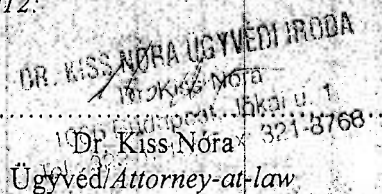 DR. KISS NÓRA ÜGYVÉDI IRODA
Kiss Nóra
Jókai u. 1.
321-8768
Dr. Kiss Nóra
Ügyvéd/Attorney-at-law